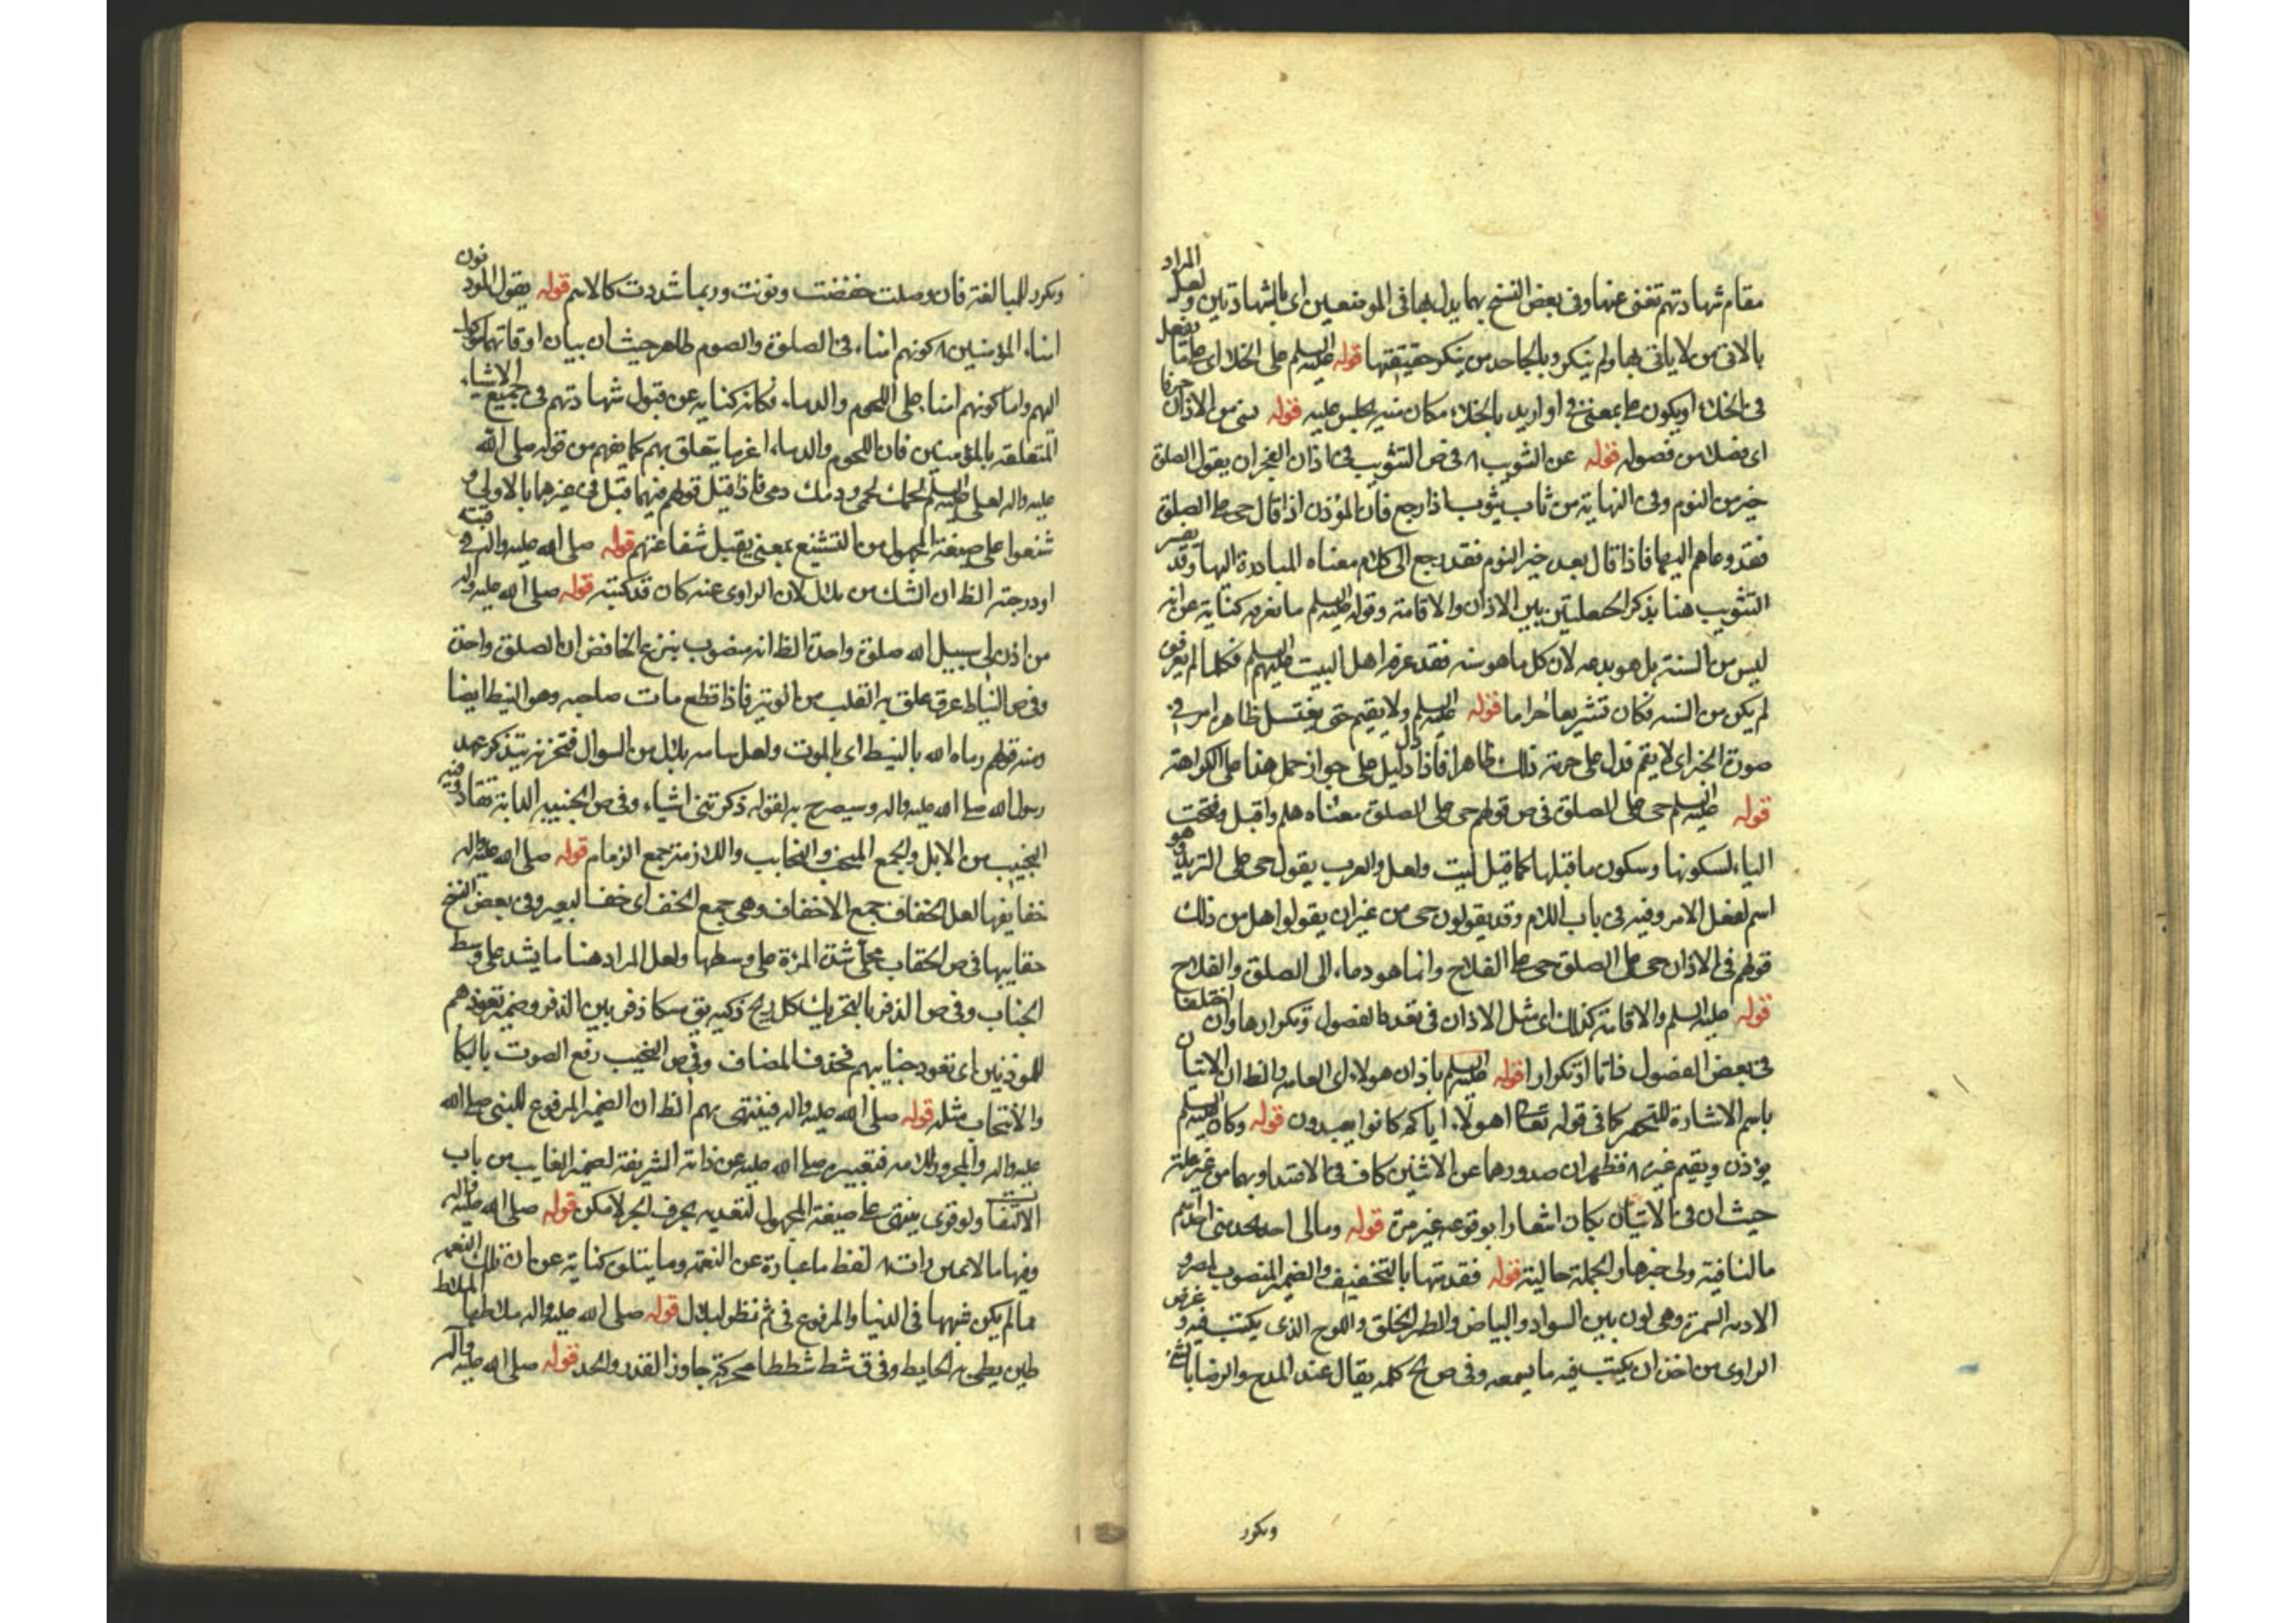 مقام شهادتهم تغنی عنها وفی بعض النسخ بهما بدل بها فی الموضعین ای بالشهادتین ولعل المراد
بالاتی من لا یاتی بها ولم ینکر وبالجاحد من ینکر حقیقتها قوله علیه السلم علی الخلا ای حال
فی الخلاء او یکون علی بمعنی فی او ارید بالخلاء مکان منه یجلس علیه قوله من الاذان حرفا
ای فصلا من فصوله قوله عن التثویب ۸ فی ص التثویب فی اذان الفجر ان یقول الصلوة
خیر من النوم وفی النهایة من ثاب یثوب اذا رجع فان المؤذن اذا قال حی علی الصلوة
فقد دعاهم الیها فاذا قال بعد خیر من النوم فقد رجع الی کلام معناه المبادرة الیها وقد یفسر
التثویب هنا بذکر الحیعلتین بین الاذان والاقامة وقوله علیه السلم ما نعرفه کنایة عن انه
لیس من السنة بل هو بدعه لان کل ما هو سنه فقد عرفه اهل البیت علیهم السلم فکلما لم یعرفوه
لم یکن من السنه فکان تشریعا حراما قوله علیه السلم ولا یقیم حتی یغتسل ظاهرا امر فی
صورة الخبر ای لا یتم فدل علی حرمة ذلک ظاهرا فاذا دل دلیل علی جواز حمل هذا علی الکراهة
قوله علیه السلم حی علی الصلوة فی ص قولهم حی علی الصلوة معناه هلم واقبل وفتحت
الیاء لسکونها وسکون ما قبلها کما قیل لیت ولعل والعرب یقول حی علی الثرید وهو
اسم لفعل الامر وفیه فی باب اللام وقد یقولون حی من غیر ان یقولوا هل من ذلک
قولهم فی الاذان حی علی الصلوة حی علی الفلاح وانما هو دعاء الی الصلوة والفلاح
قوله علیه السلم والاقامة کذلک ای مثل الاذان فی تعدد الفصول وتکرارها وان اختلفا
فی بعض الفصول فاتا او تکرارا قوله علیه السلم باذان هولاء ای العامه والظ ان الاتیان
باسم الاشارة للتحقیر کما فی قوله تعالی اهولاء ایاکم کانوا یعبدون قوله وکان علیه السلم
یؤذن ویقیم غیره ۸ فظهر ان صدورهما عن الاثنین کاف فی الاعتداد بهما من غیر علة
حیث ان فی الاتیان بکان اشعارا بوقوعه غیر مرة قوله ومالی احد یحدثنی احدثهم
ما النافیة ولی خبرها والجملة حالیة قوله فقدمتها بالتخفیف والضمیر المنصوب لمصر و
الادمه السمرة وهی لون بین السواد والبیاض والطمر الخلق واللوح الذی یکتب فیه وغرض
الراوی من اخذه ان یکتب فیه ما یسمعه وفی ص بخ کلمه یقال عند المدح والرضا بالشئ
وتکرر
وتکرر للمبالغة فان وصلت خفضت ونونت وربما شددت کالاسم قوله یقول المؤذنون
امناء المؤمنین ۸ کونهم امناء فی الصلوة والصوم ظاهر حیث ان بیان اوقاتهما موکول
الیهم واما کونهم امناء علی اللحوم والدماء فکانه کنایه عن قبول شهادتهم فی جمیع الاشیاء
المتعلقه بالمؤمنین فان اللحوم والدماء اغرها یتعلق بهم کما یفهم من قوله صلی الله
علیه واله لعلی علیه السلم لحمک لحمی ودمک دمی فاذا قبل قولهم فیهما قبل فی غیرهما بالاولی و
شفعوا علی صیغة المجهول من التشفیع بمعنی یقبل شفاعتهم قوله صلی الله علیه واله فی
او درجته الظ ان الشک من بلال لان الراوی عنه کان قد کتبه قوله صلی الله علیه واله
من اذن فی سبیل الله صلوة واحدة الظ انه منصوب بنزع الخافض ای لصلوة واحدة
وفی ص النیاط عرق علق به القلب من الوتین فاذا قطع مات صاحبه وهو النیط ایضا
ومنه قولهم رماه الله بالنیط ای بالموت ولعل سامه بلال من السوال فتحزنه بتذکر عهد
رسول الله صلی الله علیه واله وسیصرح به لقوله ذکرتنی اشیاء وفی ص الجنیبه الدابة تقاد وفیه
النجیب من الابل والجمع النجب والنجایب والازمة جمع الزمام قوله صلی الله علیه واله
خفایفها لعل الخفاف جمع الاخفاف وهی جمع الخف ای خف البعیر وفی بعض النسخ
حقایبها فی ص الحقاب محلی شده المرءة علی وسطها ولعل المراد هنا ما یشد علی وسط
الجناب وفی ص الذفر بالتحریک کل ریح ذکیه یق مسک اذفر بین الذفر وضمیر تعودهم
للموذنین ای تعود جنایبهم فحذف المضاف وفی ص النحیب رفع الصوت بالبکا
والانتحاب مثله قوله صلی الله علیه واله فینتهی بهم الظ ان الضمیر المرفوع للنبی صلی الله
علیه واله والمجرور لامته فتعبیره صلی الله علیه عن ذاته الشریفة لضمیر الغایب من باب
الالتفات ولو قری ینتهی علی صیغة المجهول لتعدیه بحرف الجر لامکن قوله صلی الله علیه واله
وفیها ما لا عین رات ۸ لفظ ما عبارة عن النعمة وما یتلوه کنایة عن ان تلک النعم
مما لم یکن شبهها فی الدنیا والمرفوع فی ثم نظر لبلال قوله صلی الله علیه واله ملاطها الملاط
طین یطین به الحایط وفی ق شط شططا محرکة جاوز القدر والحد قوله صلی الله علیه واله